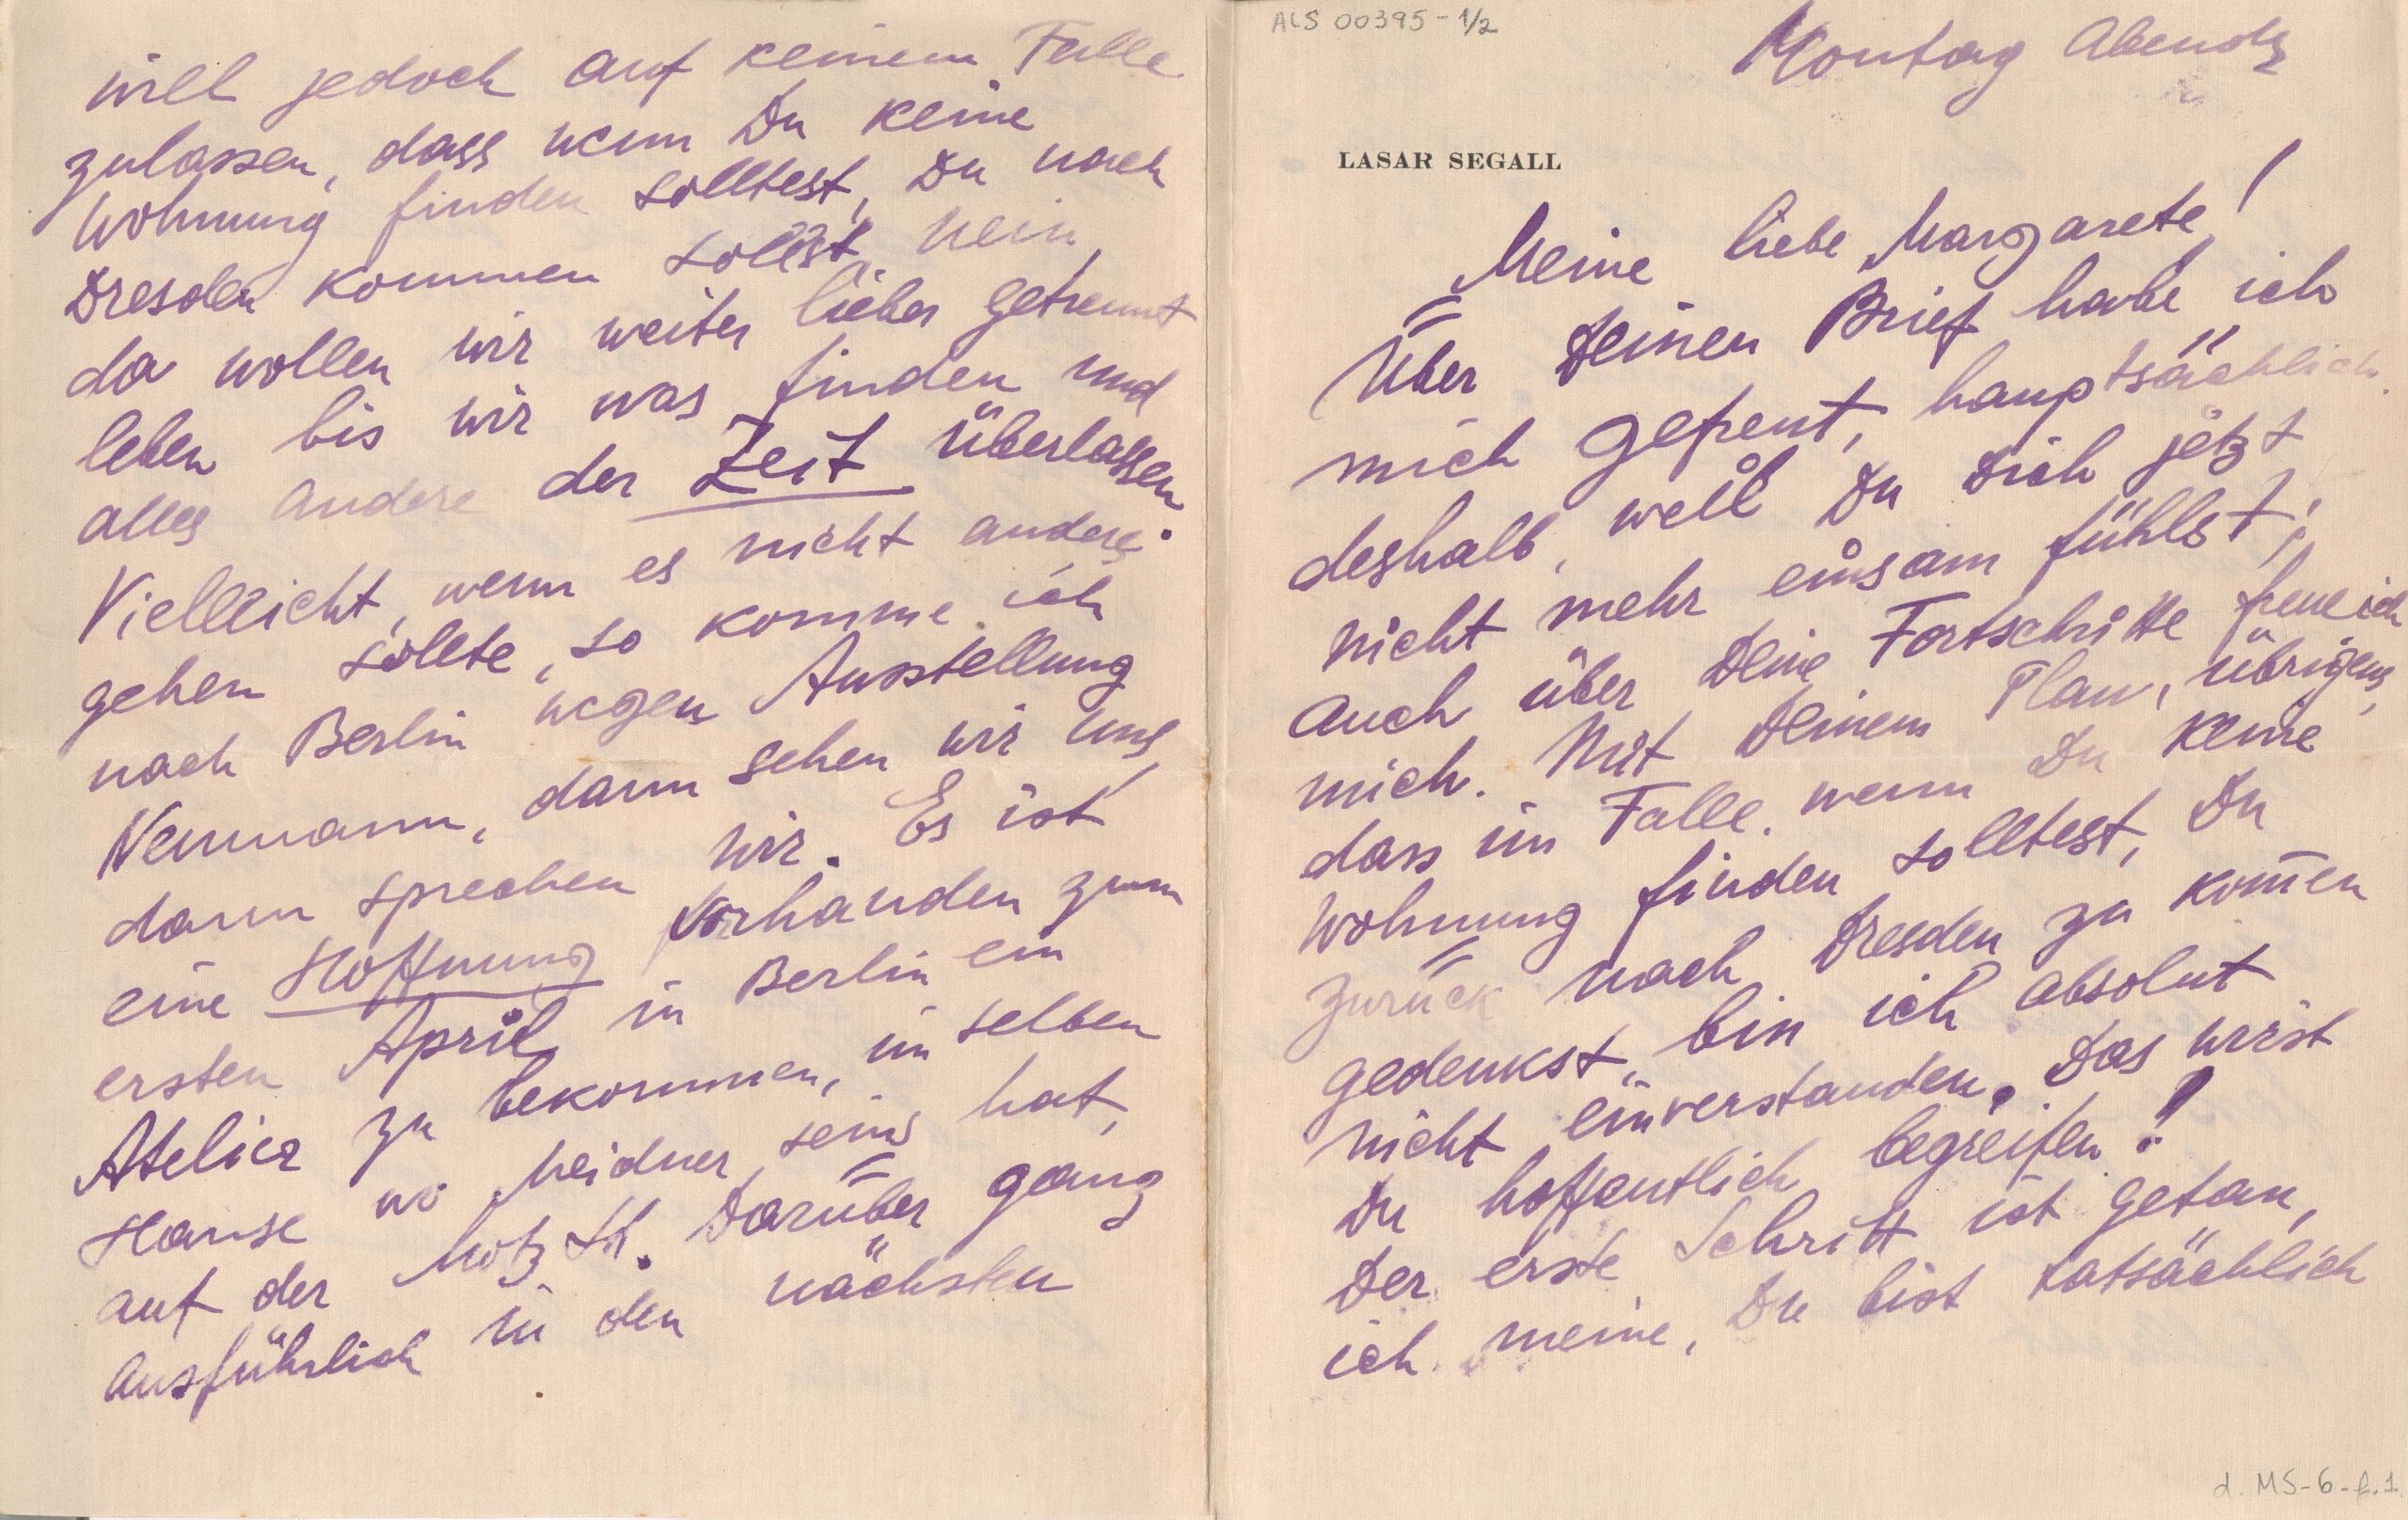 ALS 00395-1/2
Montag Abends
LASAR SEGALL
Meine liebe Margarete!
Über Deinen Brief habe ich
mich gefreut, hauptsächlich
deshalb, weil Du Dich jetzt
nicht mehr einsam fühlst;
auch über Deine Fortschritte freue ich
mich. Mit Deinem Plan, übrigens,
dass im Falle, wenn Du keine
Wohnung finden solltest, Du
zurück nach Dresden zu kom̄en
gedenkst, bin ich absolut
nicht einverstanden. Das wirst
Du hoffentlich begreifen!
Der erste Schritt ist getan,
ich meine, Du bist tatsächlich
d. MS-6-f.1
will jedoch auf keinem Falle
zulassen, dass wenn Du keine
Wohnung finden solltest, Du nach
Dresden kommen sollst, nein,
da wollen wir weiter lieber getrennt
leben bis wir was finden und
alles andere der Zeit überlassen.
Vielleicht, wenn es nicht anders
gehen sollte, so komme ich
nach Berlin wegen Ausstellung
Neumann, dann sehen wir uns,
dann sprechen wir. Es ist
eine Hoffnung vorhanden zum
ersten April in Berlin ein
Atelier zu bekommen, im selben
Hause wo Meidner seins hat,
auf der Motz St. Darüber ganz
ausführlich in den nächsten